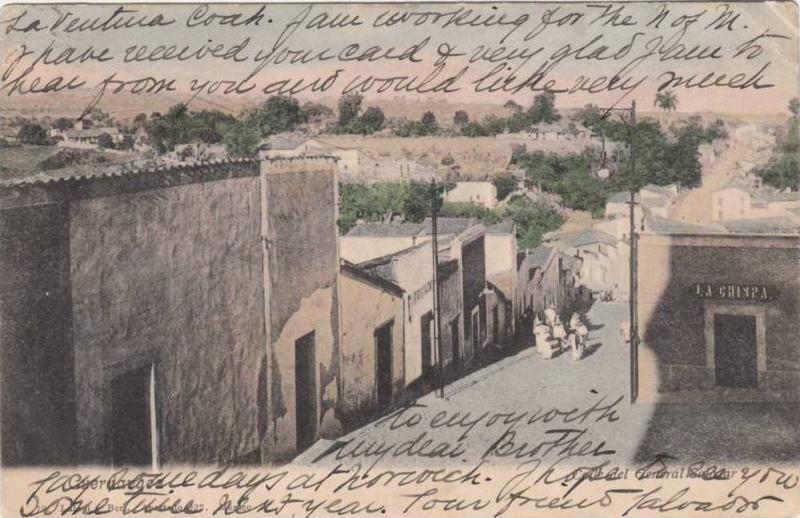 La Ventura Coah. I am working for the N of M.
I have received your card & very glad I am to
hear from you and would like very much
LA CHISPA
to enjoy with
my dear Brother
few somedays at Norwich. I hope to see you
Some time next year. Your friend Salvador
Cuernavaca
Calle del General Salazar
Apartado
México